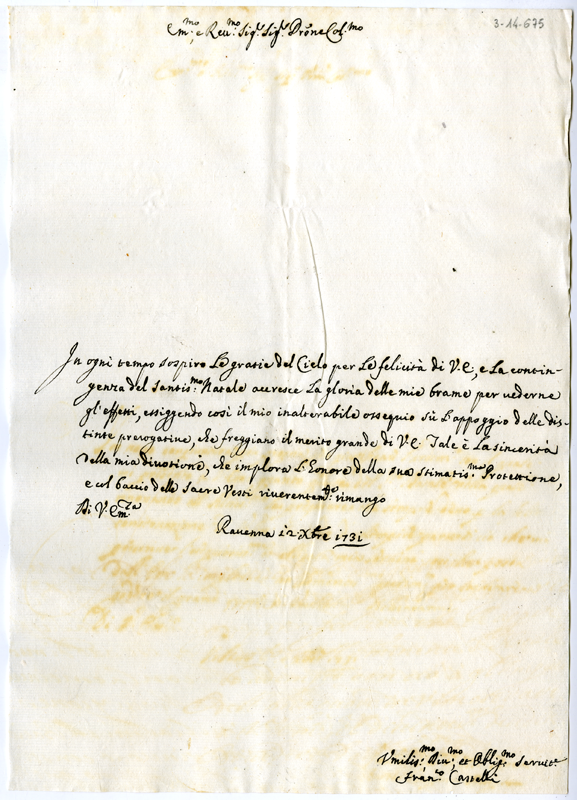 3-14-675
Em.mo e Reu.mo Sig.r Sig.r Prōne Col.mo
In ogni tempo sospiro Le gratie del Cielo per Le felicità di V.E., e La contin-
genza del Santis.mo Natale accresce La gloria delle mie brame per uederne
gl'effetti, essiggendo così il mio inalterabile ossequio sù L'appoggio delle dis-
tinte prerogatiue, che freggiano il merito grande di V.E. Tale è La sincerità
della mia diuotione, che implora L'Eonore della sua stimatis.ma Protettione,
e col baccio delle Sacre Vesti riuerentem.te rimango
Di V. Em.za
Rauenna 12 Xbre 1731
Vmilis.mo Diu.mo et Oblig.mo Seruit.e
Fran.co Castelli